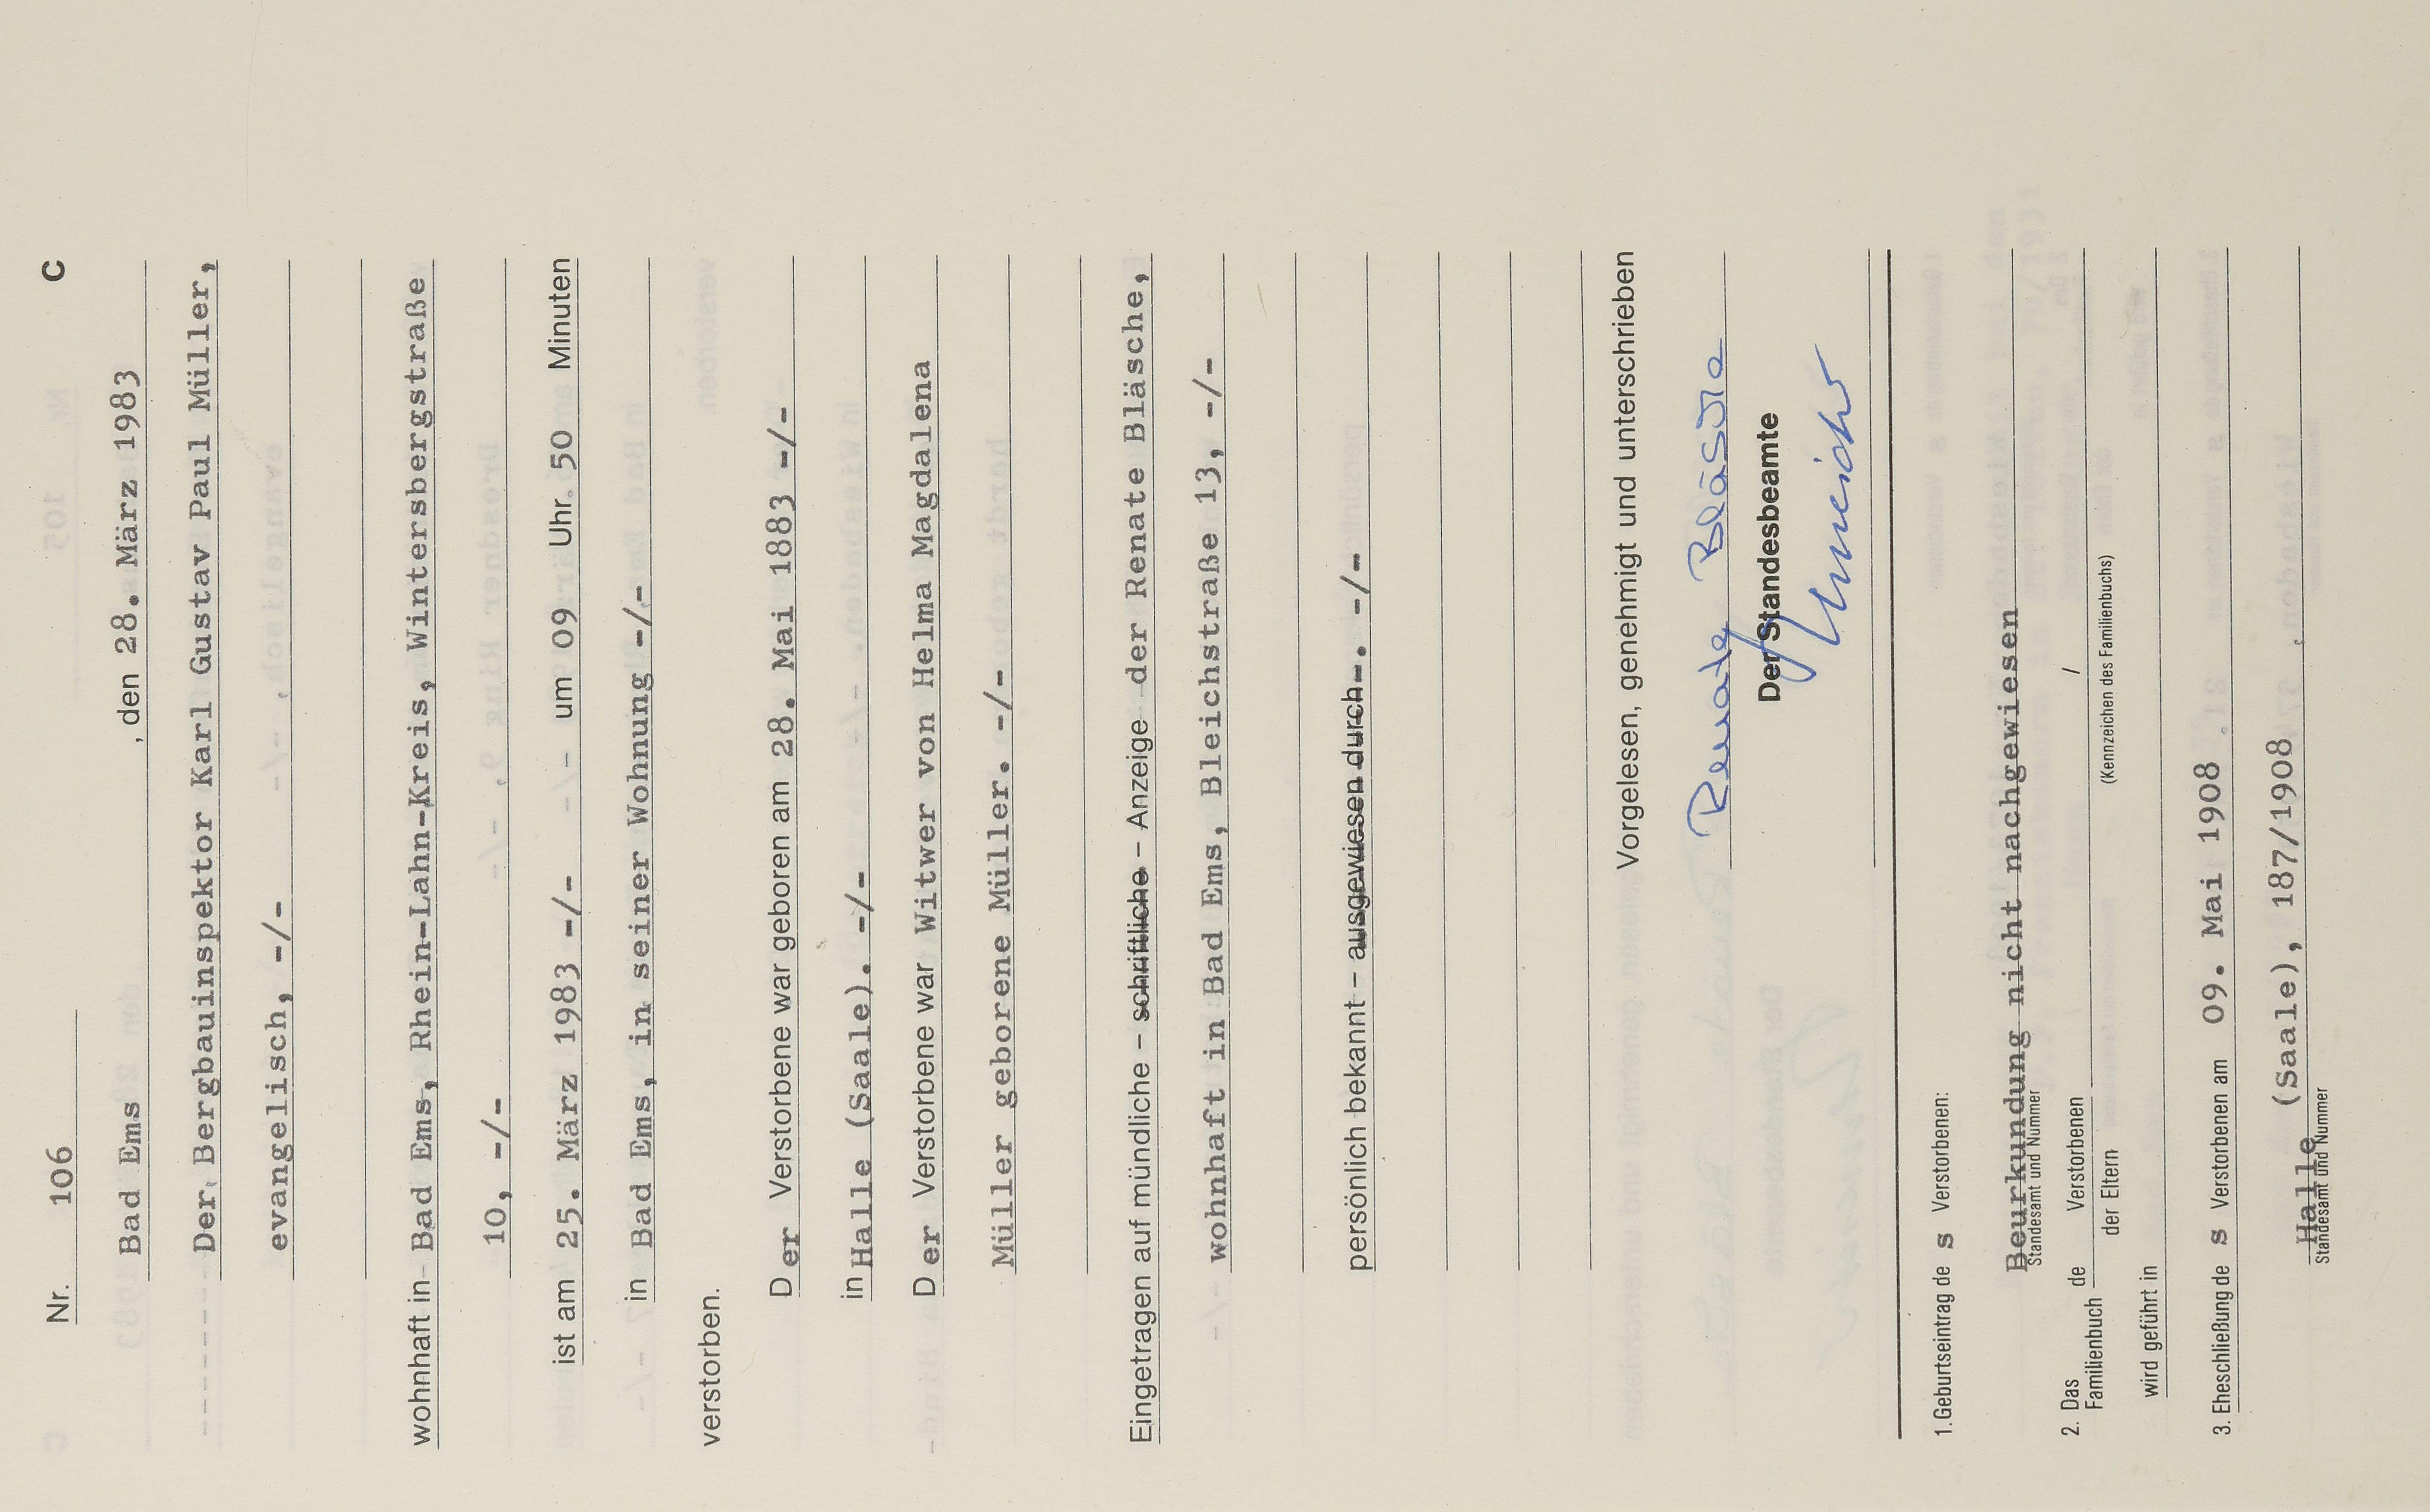 Nr. 106 C
Bad Ems , den 28. März 1983
Der Bergbauinspektor Karl Gustav Paul Müller,
evangelisch, -/-
wohnhaft in Bad Ems, Rhein-Lahn-Kreis, Wintersbergstraße
10, -/-
ist am 25. März 1983 -/- um 09 Uhr 50 Minuten
in Bad Ems, in seiner Wohnung -/-
verstorben.
Der Verstorbene war geboren am 28. Mai 1883 -/-
in Halle (Saale). -/-
Der Verstorbene war Witwer von Helma Magdalena
Müller geborene Müller. -/-
Eingetragen auf mündliche – schriftliche – Anzeige der Renate Bläsche,
wohnhaft in Bad Ems, Bleichstraße 13, -/-
persönlich bekannt – ausgewiesen durch -. -/-
Vorgelesen, genehmigt und unterschrieben
Renate Bläsche
Der Standesbeamte
1. Geburtseintrag des Verstorbenen:
Beurkundung nicht nachgewiesen
Standesamt und Nummer
2. Das Familienbuch de Verstorbenen /
der Eltern (Kennzeichen des Familienbuchs)
wird geführt in
3. Eheschließung des Verstorbenen am 09. Mai 1908
Halle (Saale), 187/1908
Standesamt und Nummer